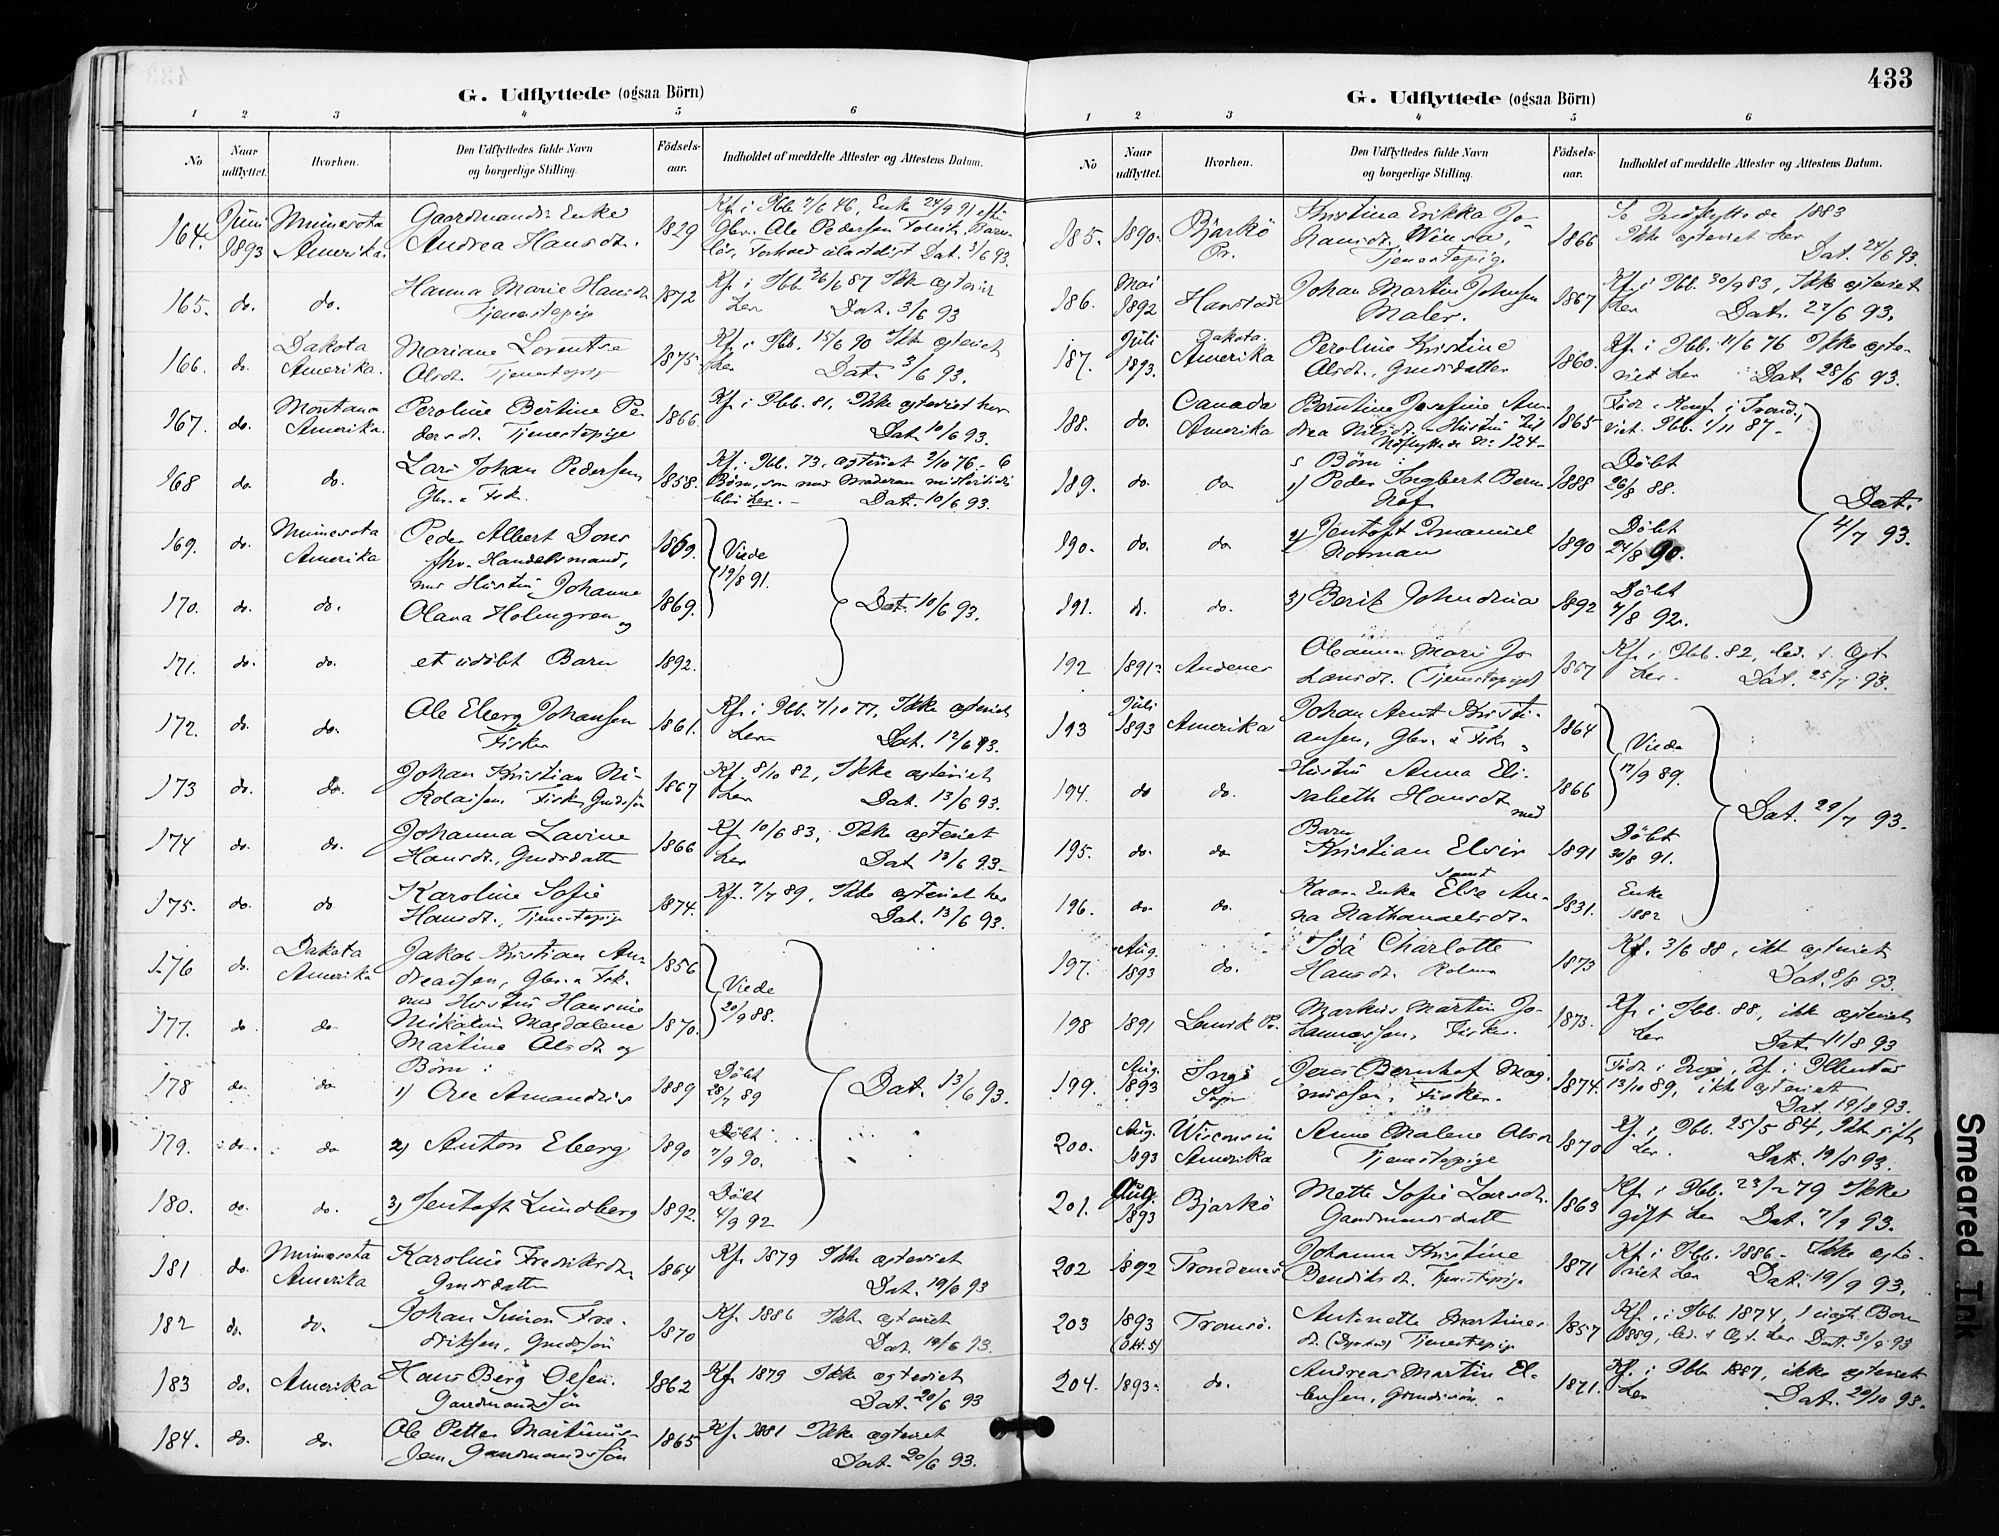 433
G. Udflyttede (ogsaa Börn)
1 2 3 4 5 6
No
Naar udflyttet.
Hvorhen.
Den Udflyttedes fulde Navn og borgerlige Stilling.
Födsels-aar.
Indholdet af meddelte Attester og Attestens Datum.
164. Juni 1893 Minnesota Amerika. Gaardmands Enke Andrea Hansdt. 1829 Kf. i Ibb. 46, Enke 24/9 91 Gbr. Ole Pedersen Dat. 3/6 93.
165. do. do. Hanna Marie Hansdt. Tjenestepige 1872 Kf. i Ibb. 26/6 87 Ikke ægteviet her Dat. 3/6 93
166. do. Dakota Amerika. Mariane Lorentse Olsdt. Tjenestepige 1875 Kf. i Ibb. 15/6 90 Ikke ægteviet her Dat. 3/6 93.
167. do. Montana Amerika. Peroline Bertine Pedersdt. Tjenestepige 1866. Kf. i Ibb. 81, Ikke ægteviet her Dat. 10/6 93.
168 do do. Lars Johan Pedersen Gbr. & Fisk. 1858. Kf. i Ibb. 73, ægteviet 2/10 76 - 6 Börn, som med Moderen blir her. - Dat. 10/6 93.
169. do. Minnesota Amerika Peder Albert Dons fhv. Handelsmand, 1869. Viede 19/8 91.
170. do. do. med Hustru Johanna Olava Holmgren og 1869. Dat. 10/6 93.
171. do. do. et udöbt Barn 1892.
172. do. do. Ole Eberg Johansen Fisker 1861. Kf. i Ibb. 7/10 77, Ikke ægteviet her Dat. 12/6 93.
173 do. do. Johan Kristian Nikolaisen Fisker, Gmdssön 1867 Kf. 8/10 82, Ikke ægteviet her Dat. 13/6 93.
174 do. do. Johanna Lavine Hansdt., Gmdsdatter 1866 Kf. 10/6 83, Ikke ægteviet her Dat 13/6 93.
175. do. do Karoline Sofie Hansdt., Tjenestepige 1874. Kf. 7/7 89, Ikke ægteviet her Dat. 13/6 93.
176 do. Dakota Amerika Jakob Kristian Andreassen, Gbr. & Fisk. 1856 Viede 20/9 88.
177. do do med Hustru Hansine Nikoline Magdalena Martina Olsdt og 1870.
178 do do Börn: 1) Ove Amandus 1889 Döbt 28/7 89 Dat. 13/6 93.
179. do. do 2) Anton Eberg 1890 Döbt 7/9 90.
180. do. do. 3) Jentoft Lundberg 1892. Döbt 4/9 92
181 do. Minnesota Amerika Karoline Fredriksdt. Gmdsdatter 1864 Kf. 1879 Ikke ægteviet Dat. 19/6 93
182 do. do. Johan Simon Fredriksen, Gmdssön 1870 Kf. 1886 Ikke ægteviet Dat. 19/6 93.
183 do. Amerika Hans Berg Olsen. Gaardmandssön 1862 Kf. 1879 Ikke ægteviet Dat. 20/6 93
184. do. do. Ole Petter Martinussen Gaardmandssön 1865 Kf. 1881 Ikke ægteviet Dat. 20/6 93.
G. Udflyttede (ogsaa Börn)
1 2 3 4 5 6
No
Naar udflyttet.
Hvorhen.
Den Udflyttedes fulde Navn og borgerlige Stilling.
Födsels-aar.
Indholdet af meddelte Attester og Attestens Datum.
185. 1890. Bjarkö Pr. Kristina Erikka Johansdt. Tjenestepige 1866 Se Indflyttede 1883 Ikke ægteviet her Dat. 24/6 93.
186. Mai 1892 Harstad Johan Martin Johnsen Maler. 1867 Kf. i Ibb. 30/9 83, Ikke ægteviet her Dat. 27/6 93.
187. Juli 1893. Dakota Amerika Peroline Kristine Olsdt., Gmdsdatter 1860. Kf. i Ibb. 11/6 76 Ikke ægteviet her Dat. 28/6 93.
188. do. Canada Amerika Berntine Josefine Andrea Nilsdt. Hustru til Udflyttede No. 124 1865 Viet. Ibb. 1/11 87
189. do. do 3 Börn: 1) Peder Ingbert Bernhof 1888 Döbt 26/8 88. Dat. 4/7 93.
190. do. do 2) Jentoft Imanuel Norman 1890 Döbt 24/8 90.
191. do. do. 3) Berit Johndina 1892 Döbt 7/8 92.
192 1891 Andenes Oleanna Marie Johansdt. (Tjenestepige) 1867 Kf. i Ibb. 82, led. f. Ægt. her. Dat. 25/7 93.
193 Juli 1893 Amerika Johan Arnt Kristiansen, Gbr. & Fisk. 1864 Viede 17/9 89.
194. do do. Hustru Anna Elisabeth Hansdt med 1866 Dat. 29/7 93.
195. do. do Barn Kristian Elvin 1891 Döbt 30/8 91.
196. do. do. samt Enke Else Anna Nathanaelsdt. 1831. Enke 1882
197. Aug. 1893 do. Ida Charlotte Hansdt. 1873 Kf. 3/6 88, ikke ægteviet Dat. 8/8 93.
198 1891 Lenvik Pr. Markus Martin Johannessen, Fisker. 1873. Kf. i Ibb. 88, ikke ægteviet her Dat. 11/8 93
199. Aug. 1893 Ingö Sogn Jens Bernhof Magnussen, Fisker. 1874. Födt i Ingö, Kf. i 13/10 89, ikke ægteviet Dat. 19/8 93.
200. Aug. 1893 Wisconsin Amerika Anne Malene Olsdt Tjenestepige 1870 Kf. i Ibb. 25/5 84, Ikke gift her. Dat. 19/8 93.
201. Aug. 1893 Bjarkö Mette Sofie Larsdt. Gaardmandsdatt 1863 Kf. i Ibb. 79 Ikke gift her Dat. 7/9 93.
202 1892 Trondenes Johanna Kristine Bendiksdt. Tjenestepige 1871 Kf. i Ibb. 1886 - Ikke ægteviet her Dat. 19/9 93.
203 1893 (Okt. 5) Tromsö. Antonette Martinesdt. Tjenestepige 1857 Kf. i Ibb 1874, 1 uægt. Barn 1889, led. f. Ægt. her Dat. 30/9 93
204. 1893 do. Andreas Martin Elbensen, Gmdssön. 1871. Kf. i Ibb 1887, ikke ægteviet her Dat. 20/10 93.
Smeared Ink